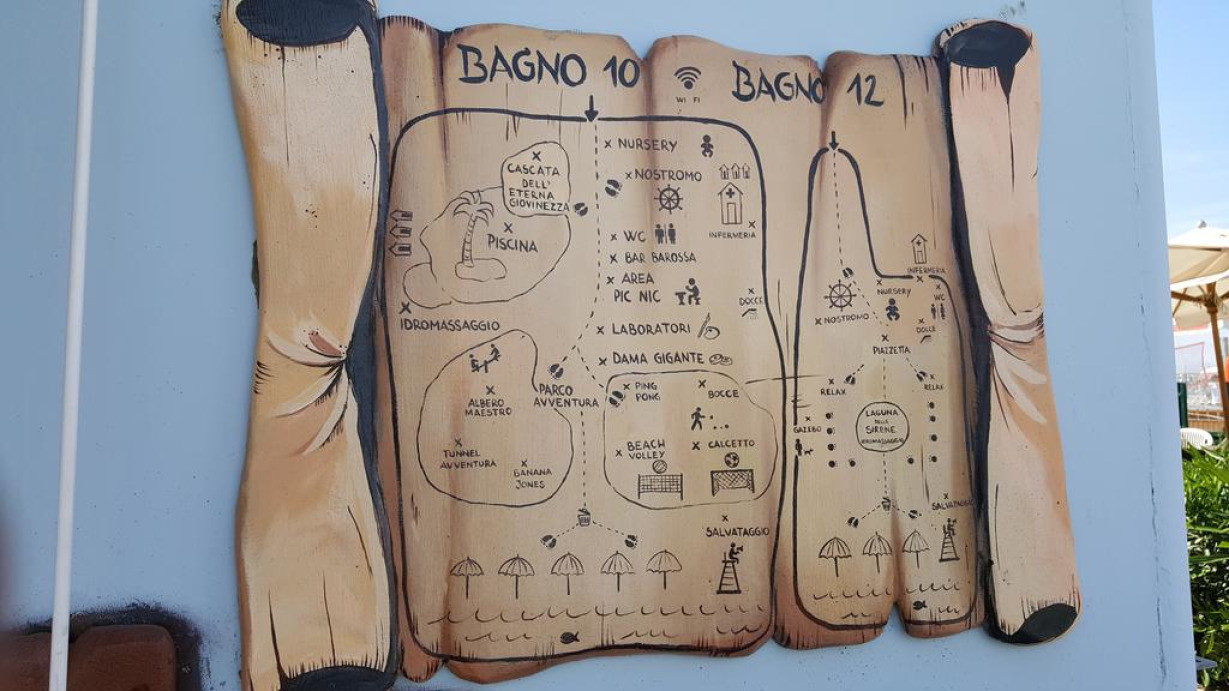 BAGNO 10
WI FI
BAGNO 12
NURSERY
CASCATA
DELL'
ETERNA
GIOVINEZZA
NOSTROMO
PISCINA
WC
INFERMERIA
BAR BAROSSA
AREA
PIC NIC
DOCCE
IDROMASSAGGIO
LABORATORI
DAMA GIGANTE
PARCO
AVVENTURA
PING
PONG
BOCCE
ALBERO
MAESTRO
TUNNEL
AVVENTURA
BANANA
JONES
BEACH
VOLLEY
CALCETTO
SALVATAGGIO
INFERMERIA
NURSERY
WC
NOSTROMO
DOCCE
PIAZZETTA
RELAX
RELAX
LAGUNA
DELLE
SIRENE
IDROMASSAGGIO
GAZEBO
SALVATAGGIO